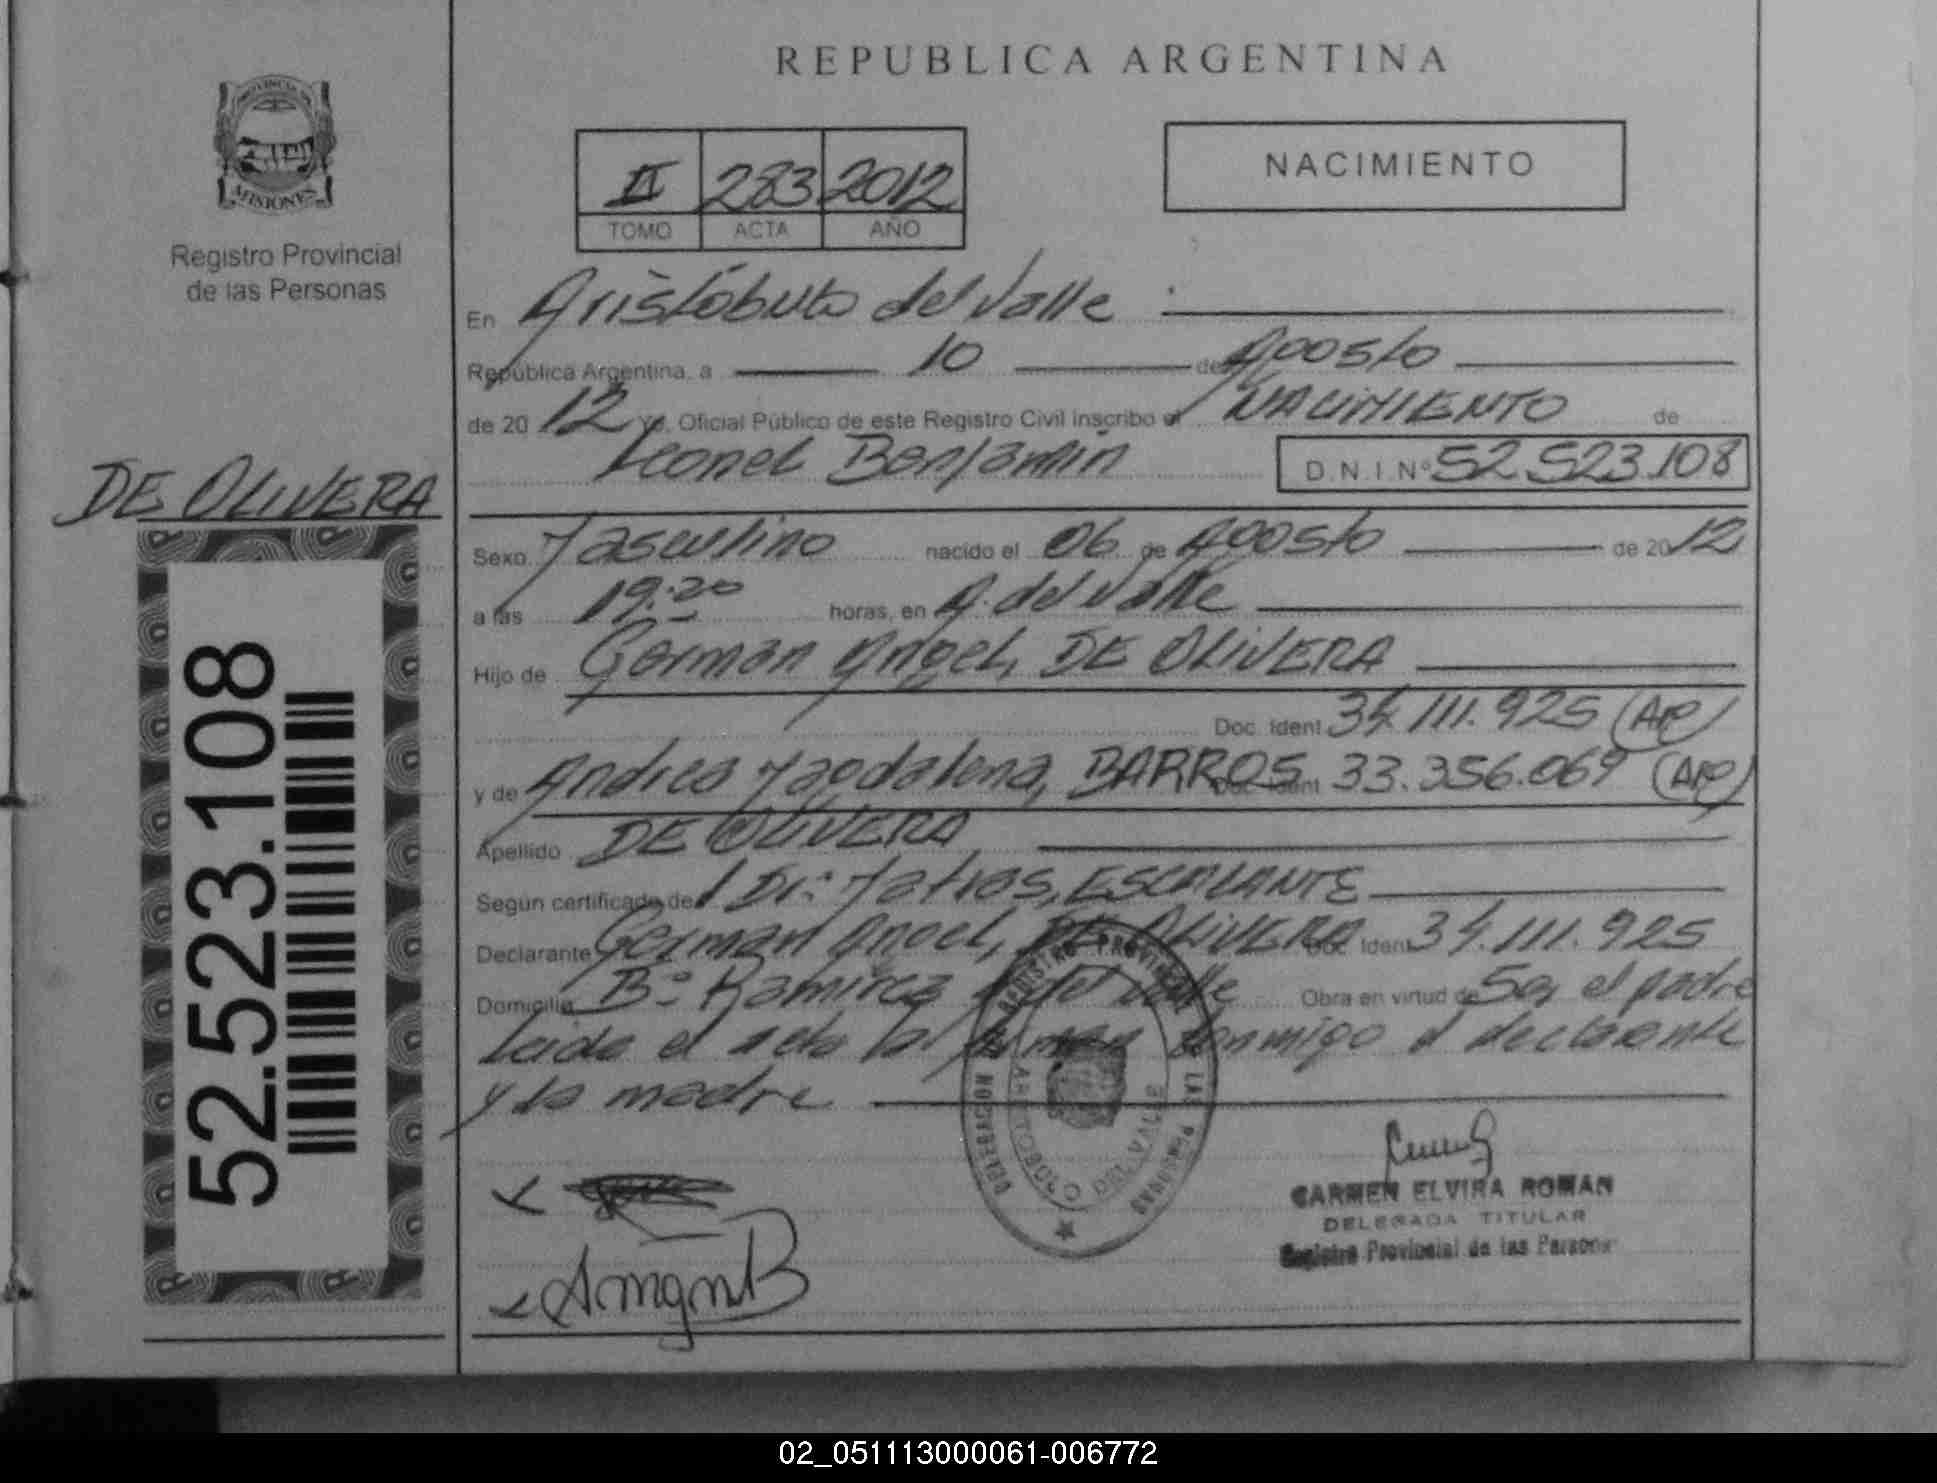 REPUBLICA ARGENTINA
PROVINCIA DE
MISIONES
Registro Provincial
de las Personas
II 283 2012
TOMO ACTA AÑO
NACIMIENTO
En Aristóbulo del Valle
República Argentina, a 10 de Agosto
de 20 12 Yo, Oficial Público de este Registro Civil inscribo el NACIMIENTO de
Leonel Benjamin D.N.I.Nº 52.523.108
DE OLIVERA
Sexo Masculino nacido el 06 de Agosto de 2012
a las 19:20 horas, en A. del Valle
Hijo de German Angel, DE OLIVERA
Doc. Ident 34.111.925 (Arg)
y de Andrea Magdalena, BARROS Doc. Ident 33.356.069 (Arg)
Apellido DE OLIVERA
Según certificado del Dr: Matias, ESCALANTE
Declarante German Angel, DE OLIVERA Doc. Ident 34.111.925
Domicilio Bº Ramirez A. del Valle Obra en virtud de Ser el padre
Leida el acta la firman conmigo el declarante
y la madre
52.523.108
DELEGACION DEL REGISTRO PROVINCIAL DE LAS PERSONAS
ARISTOBULO DEL VALLE
CARMEN ELVIRA ROMAN
DELEGADA TITULAR
Registro Provincial de las Personas
02_051113000061-006772